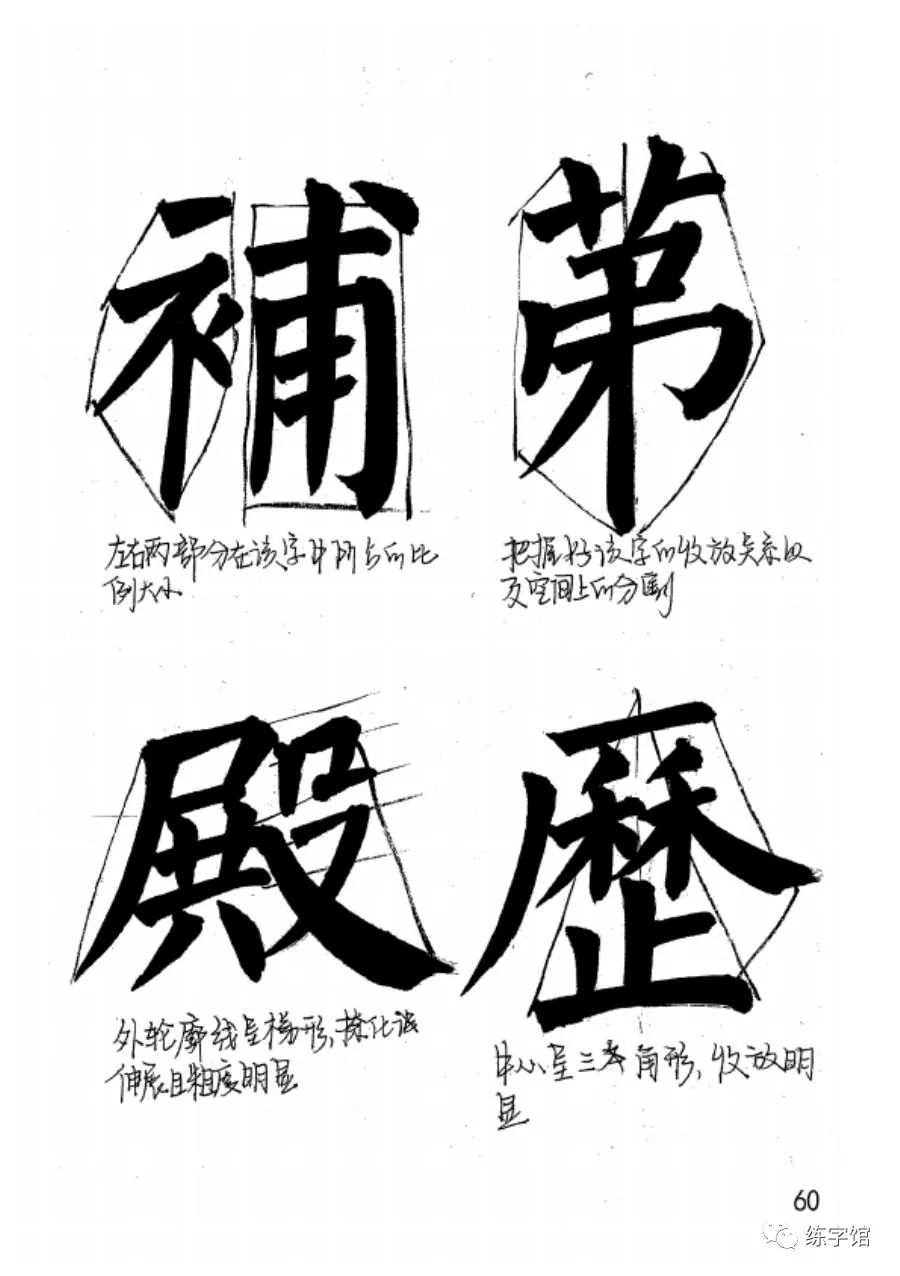 補
第
左右两部分在该字中所占的比
例大小
把握好该字的收放关系以
及空间上的分割
殿
歷
外轮廓线呈梯形，捺化该
伸展且粗度明显
中心呈三角形，收放明
显
60
练字馆